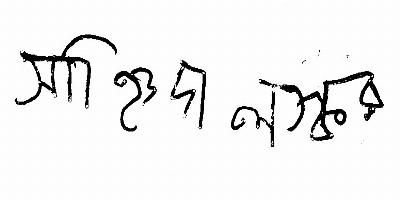 সাহিদা লস্কর